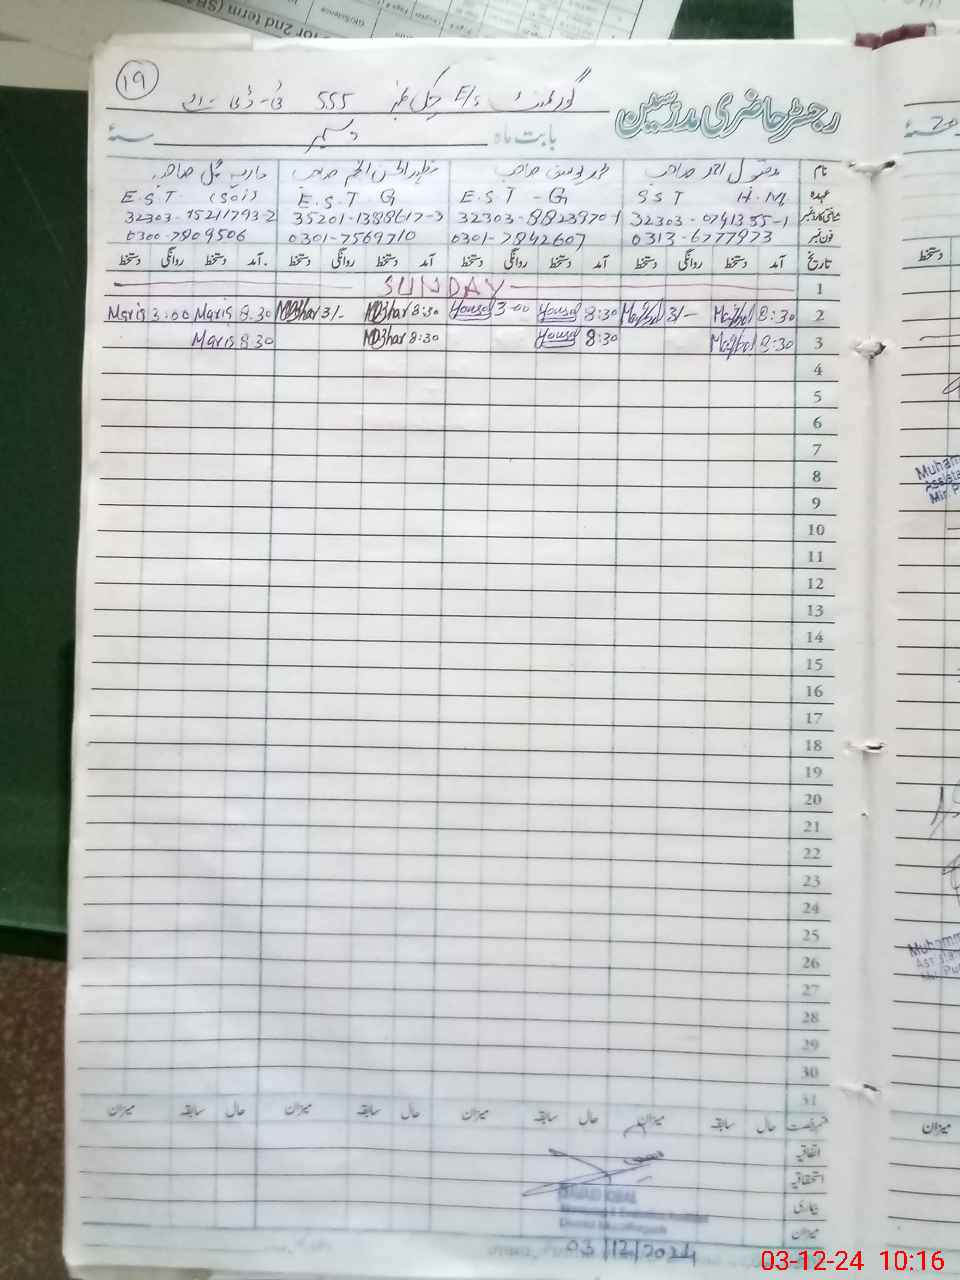 for 2nd term (SBA
19
رجسٹر حاضری مدرسین
گورنمنٹ E/s چک نمبر 555 ٹی-ڈی-اے
بابت ماہ دسمبر سنہ
نام مقبول احمد صاحب محمد یوسف صاحب ماریہ گل صاحبہ
عہدہ SST H.M E.S.T - G E.S.T G E.S.T. (Sci)
شناختی کارڈ نمبر 32303-0741355-1 32303-8823970-1 35201-1388617-3 32303-1521793-2
فون نمبر 0313-6777973 0301-7842607 0301-7569710 0300-7809506
تاریخ آمد دستخط روانگی دستخط آمد دستخط روانگی دستخط آمد دستخط روانگی دستخط آمد دستخط روانگی دستخط
1 SUNDAY
2 8:30 Maqbol 3/- Maqbol 8:30 Yousaf 3-00 Yousaf 8:30 Mazhar 3/- Mazhar 8.30 Maria 3:00 Maria
3 8:30 Maqbol 8:30 Yousaf 8:30 Mazhar 8 30 Maria
4
5
6
7
8
9
10
11
12
13
14
15
16
17
18
19
20
21
22
23
24
25
26
27
28
29
30
31
حال سابقہ میزان حال سابقہ میزان حال سابقہ میزان حال سابقہ میزان
اتفاقیہ
استحقاقیہ
بیماری
میزان
03/12/2024
دستخط
Muham
Assista
میزان
03-12-24 10:16